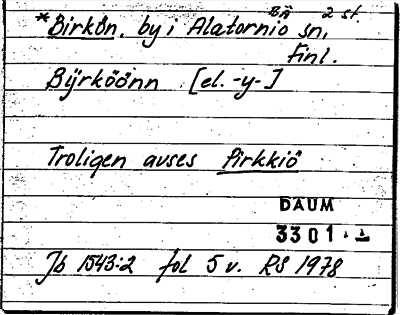 BN 2 st.
*Birkön, by i Alatornio sn,
Finl.
Bÿrköönn [el. -y-]
Troligen avses Pirkkiö
DAUM
3301
Jb 1543:2 fol 5 v. RS 1978